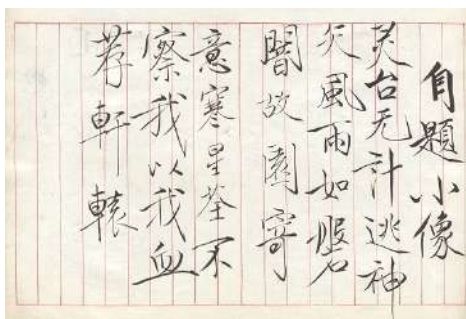 自題小像
灵台无计逃神
矢風雨如磐
闇故園寄
意寒星荃不
察我以我血
荐軒轅